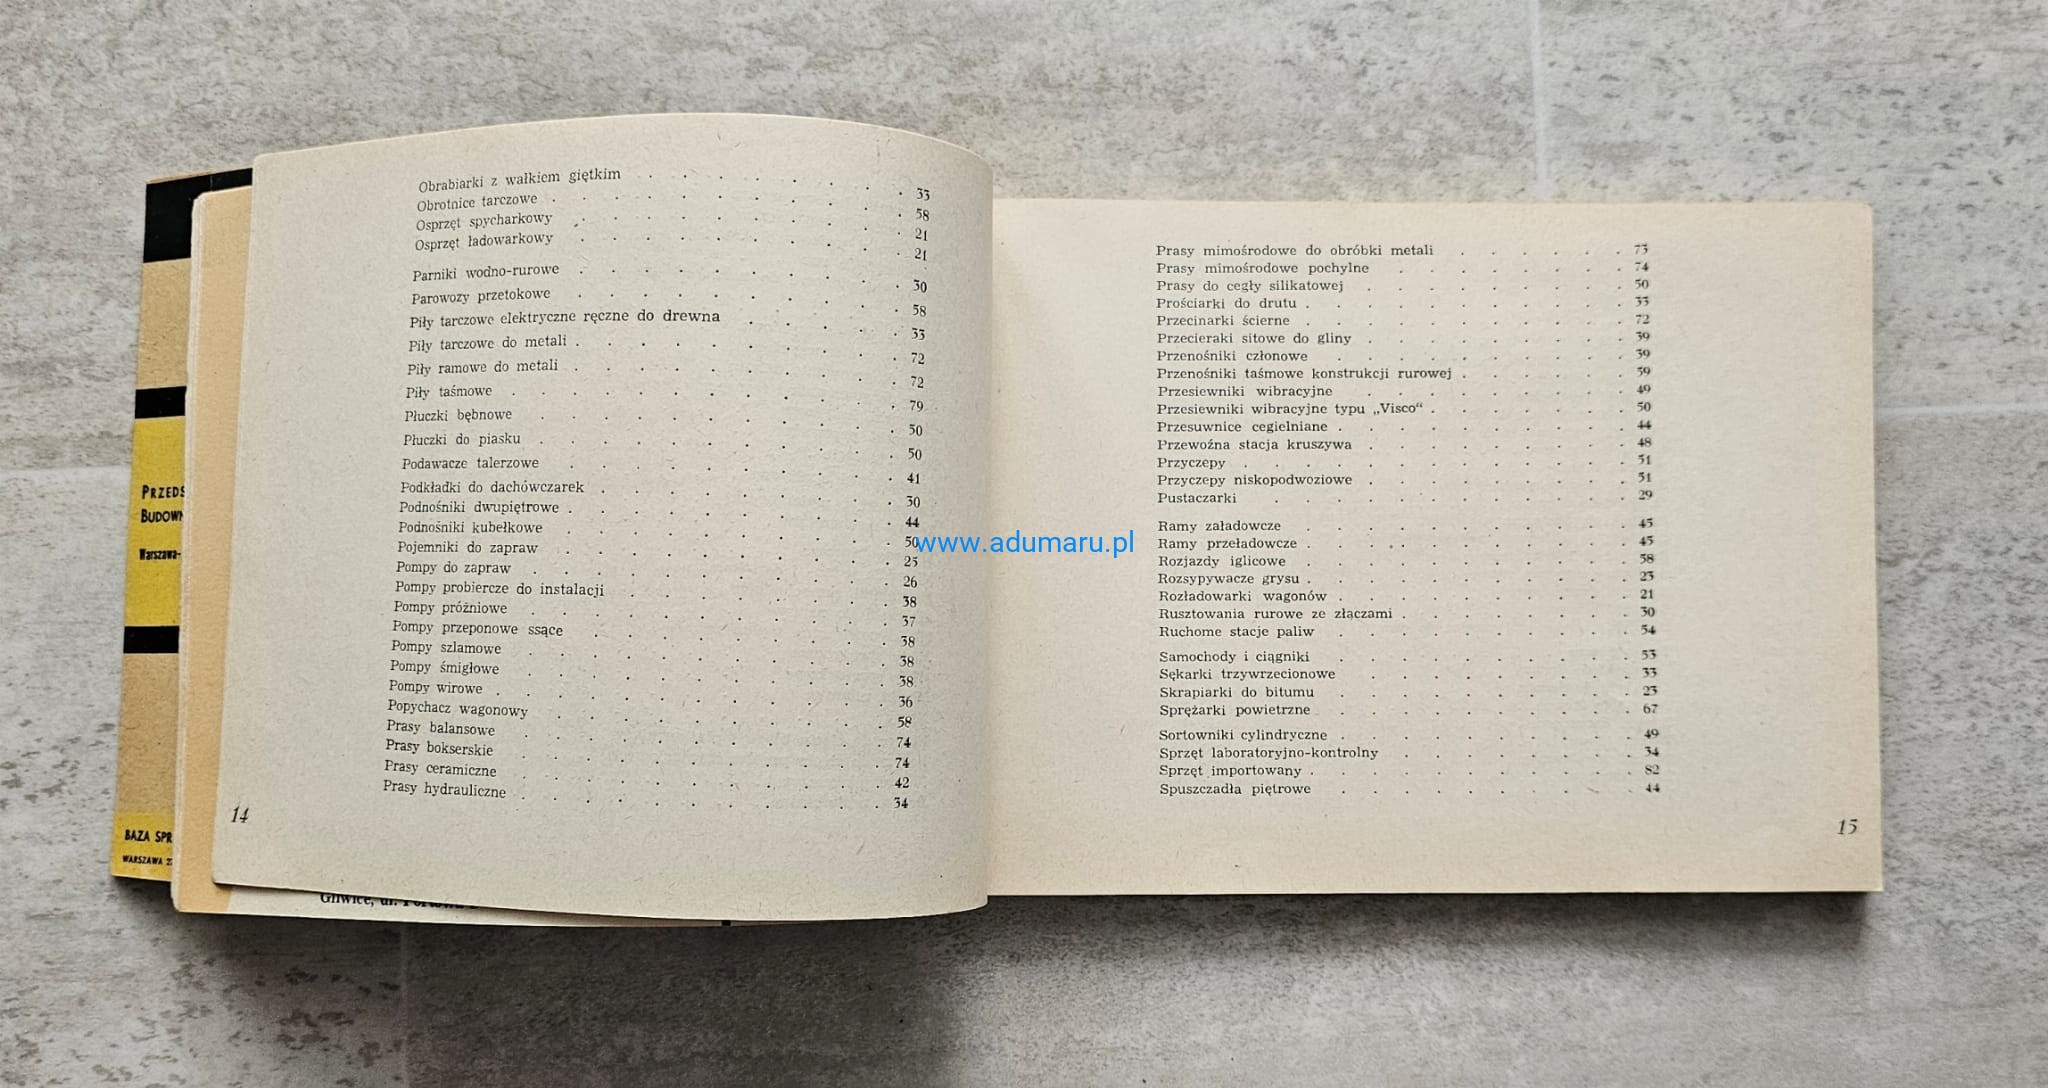 Obrabiarki z wałkiem giętkim . . . . . . . . 33
Obrotnice tarczowe . . . . . . . . . . 58
Osprzęt spycharkowy . . . . . . . . . . 21
Osprzęt ładowarkowy . . . . . . . . . . 21
Parniki wodno-rurowe . . . . . . . . . . 30
Parowozy przetokowe . . . . . . . . . . 58
Piły tarczowe elektryczne ręczne do drewna . . . . . 33
Piły tarczowe do metali . . . . . . . . . . 72
Piły ramowe do metali . . . . . . . . . . 72
Piły taśmowe . . . . . . . . . . . 79
Płuczki bębnowe . . . . . . . . . . . 50
Płuczki do piasku . . . . . . . . . . . 50
Podawacze talerzowe . . . . . . . . . . 41
Podkładki do dachówczarek . . . . . . . . . 30
Podnośniki dwupiętrowe . . . . . . . . . . 44
Podnośniki kubełkowe . . . . . . . . . . 50
Pojemniki do zapraw . . . . . . . . . . 25
Pompy do zapraw . . . . . . . . . . . 26
Pompy probiercze do instalacji . . . . . . . . 38
Pompy próżniowe . . . . . . . . . . . 37
Pompy przeponowe ssące . . . . . . . . . 38
Pompy szlamowe . . . . . . . . . . . 38
Pompy śmigłowe . . . . . . . . . . . 38
Pompy wirowe . . . . . . . . . . . . 36
Popychacz wagonowy . . . . . . . . . . 58
Prasy balansowe . . . . . . . . . . . 74
Prasy bokserskie . . . . . . . . . . . 74
Prasy ceramiczne . . . . . . . . . . . 42
Prasy hydrauliczne . . . . . . . . . . . 34
14
Prasy mimośrodowe do obróbki metali . . . . . . 73
Prasy mimośrodowe pochylne . . . . . . . . 74
Prasy do cegły silikatowej . . . . . . . . . 50
Prościarki do drutu . . . . . . . . . . . 33
Przecinarki ścierne . . . . . . . . . . . 72
Przecieraki sitowe do gliny . . . . . . . . . 39
Przenośniki członowe . . . . . . . . . 39
Przenośniki taśmowe konstrukcji rurowej . . . . . . 59
Przesiewniki wibracyjne . . . . . . . . . 49
Przesiewniki wibracyjne typu „Visco“ . . . . . . . 50
Przesuwnice cegielniane . . . . . . . . . . 44
Przewoźna stacja kruszywa . . . . . . . . . 48
Przyczepy . . . . . . . . . . . . . 51
Przyczepy niskopodwoziowe . . . . . . . . . 51
Pustaczarki . . . . . . . . . . . . 29
Ramy załadowcze . . . . . . . . . . . 45
Ramy przeładowcze . . . . . . . . . . . 45
Rozjazdy iglicowe . . . . . . . . . . . 58
Rozsypywacze grysu . . . . . . . . . . . 23
Rozładowarki wagonów . . . . . . . . . . 21
Rusztowania rurowe ze złączami . . . . . . . . 30
Ruchome stacje paliw . . . . . . . . . . 54
Samochody i ciągniki . . . . . . . . . . 53
Sękarki trzywrzecionowe . . . . . . . . . 33
Skrapiarki do bitumu . . . . . . . . . . 23
Sprężarki powietrzne . . . . . . . . . . 67
Sortowniki cylindryczne . . . . . . . . . . 49
Sprzęt laboratoryjno-kontrolny . . . . . . . . 34
Sprzęt importowany . . . . . . . . . . . 82
Spuszczadła piętrowe . . . . . . . . . . 44
15
www.adumaru.pl
PRZEDS
BUDOWN
Warszawa-
BAZA SPR
WARSZAWA
Gliwice, ul.